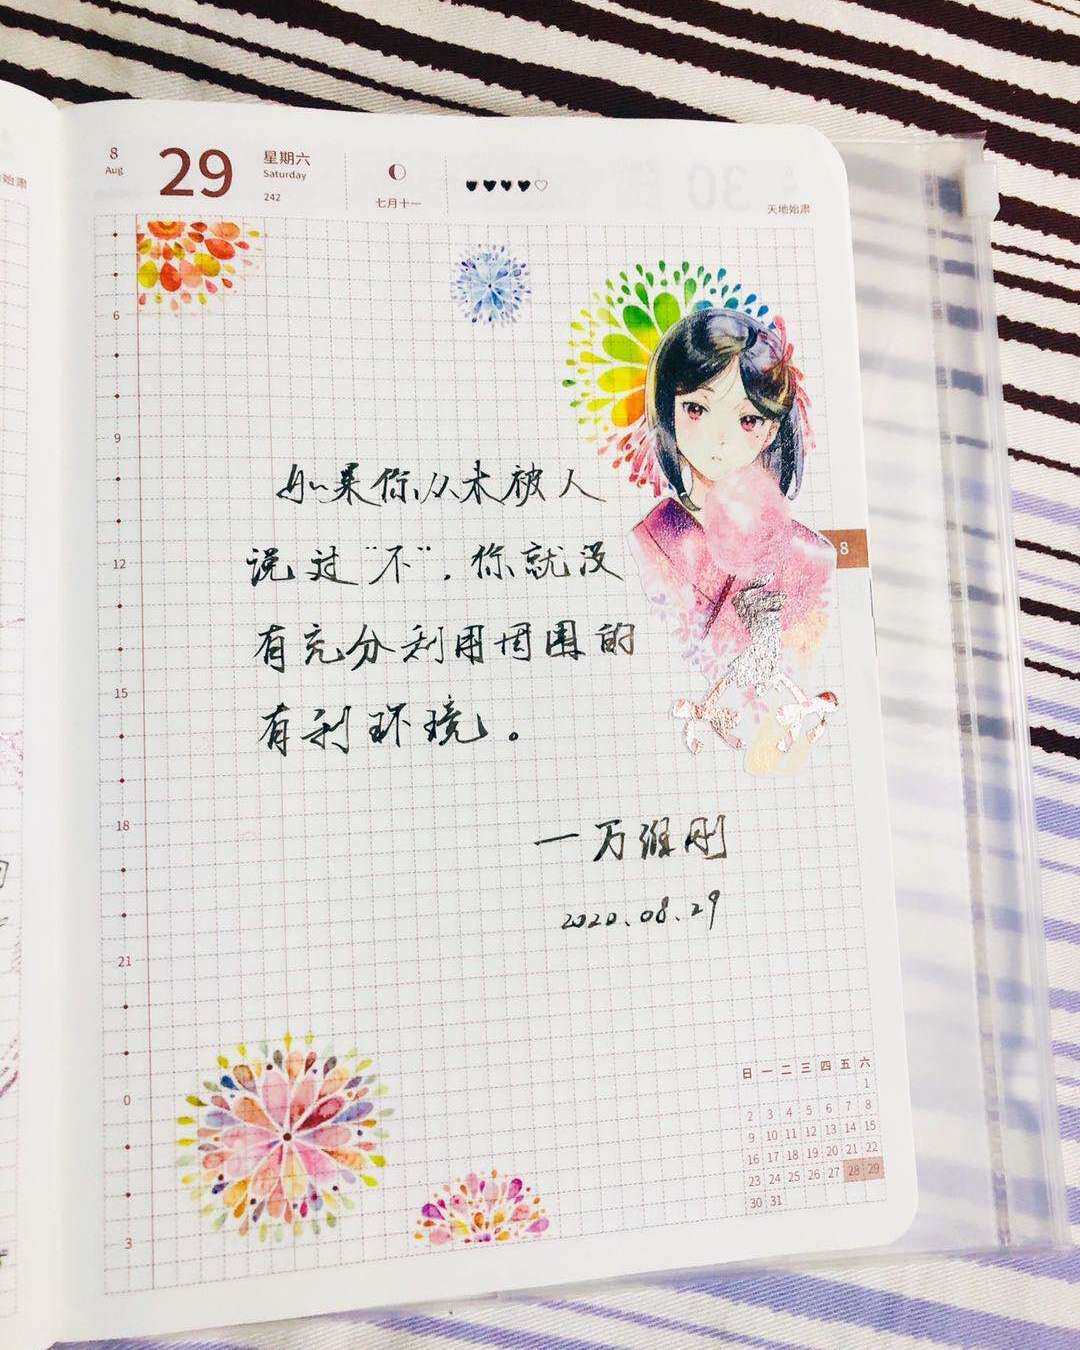 8
Aug
29
星期六
Saturday
242
七月十一
天地始肃
始肃
6
9
12
15
18
21
0
3
8
如果你从未被人
说过“不”，你就没
有充分利用周围的
有利环境。
一万维刚
2020.08.29
日 一 二 三 四 五 六
1
2 3 4 5 6 7 8
9 10 11 12 13 14 15
16 17 18 19 20 21 22
23 24 25 26 27 28 29
30 31